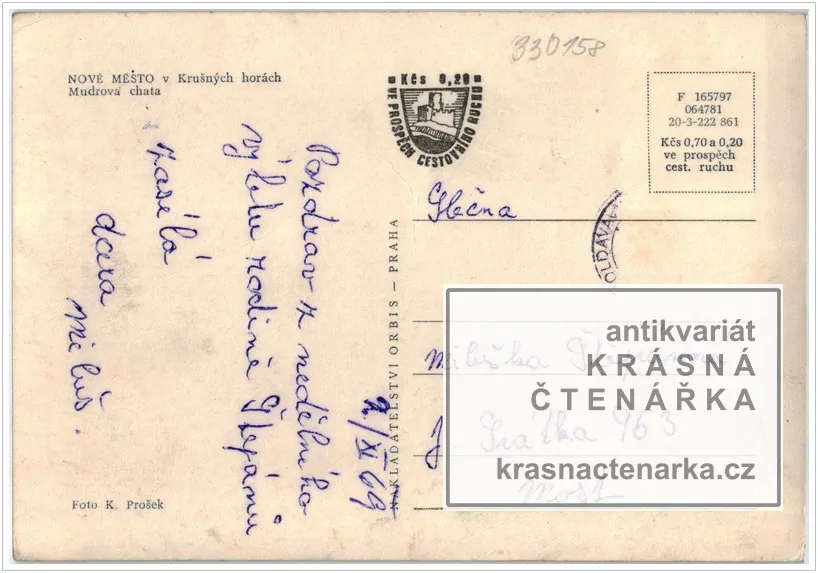 NOVÉ MĚSTO v Krušných horách
Mudrova chata
330158
Kčs 0,20
VE PROSPĚCH CESTOVNÍHO RUCHU
F 165797
064781
20-3-222 861
Kčs 0,70 a 0,20
ve prospěch
cest. ruchu
Pozdrav z nedělního
výletu rodině Štěpánů
zasílá
Miluš.
2./XI 69
NAKLADATELSTVÍ ORBIS – PRAHA
Slečna
Miluška
Krátká 953
Most
antikvariát
KRÁSNÁ
ČTENÁŘKA
krasnactenarka.cz
Foto K. Prošek